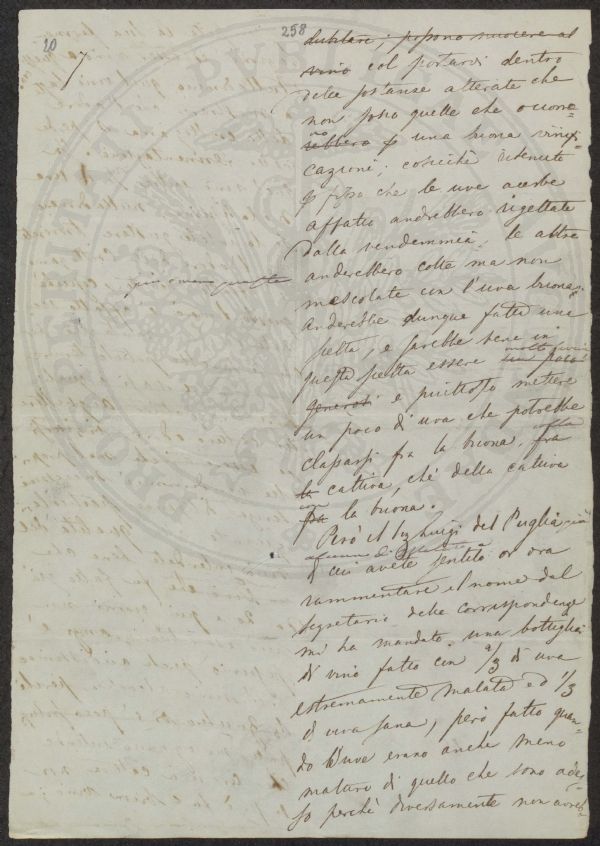 20
258
7.
dubitare; possono nuocere al
vino col portarvi dentro
delle sostanze alterate che
non sono quelle che occor-
rebbero p una buona vinifi-
cazione; cosicchè ritenuto
p fisso che le uve acerbe
affatto andrebbero rigettate
dalla vendemmia, le altre
anderebbero colte ma non
mescolate con l'uva buona.
Anderebbe dunque fatta una
scelta, e sarebbe bene in
questa scelta essere un poco
molto
generosi e piuttosto mettere
un poco di uva che potrebbe
classarsi fra la buona, fra
la cattiva, che della cattiva
fra la buona.
Però il Sig Luigi del Puglia
di cui avete sentito or ora
rammentare il nome dal
Segretario delle corrispondenze
mi ha mandato una bottiglia
di vino fatto con 2/3 di uva
estremamente malata ed 1/3
d'uva sana, però fatto quan-
do l'uve erano anche meno
mature di quello che sono ades-
so perchè diversamente non avreb-